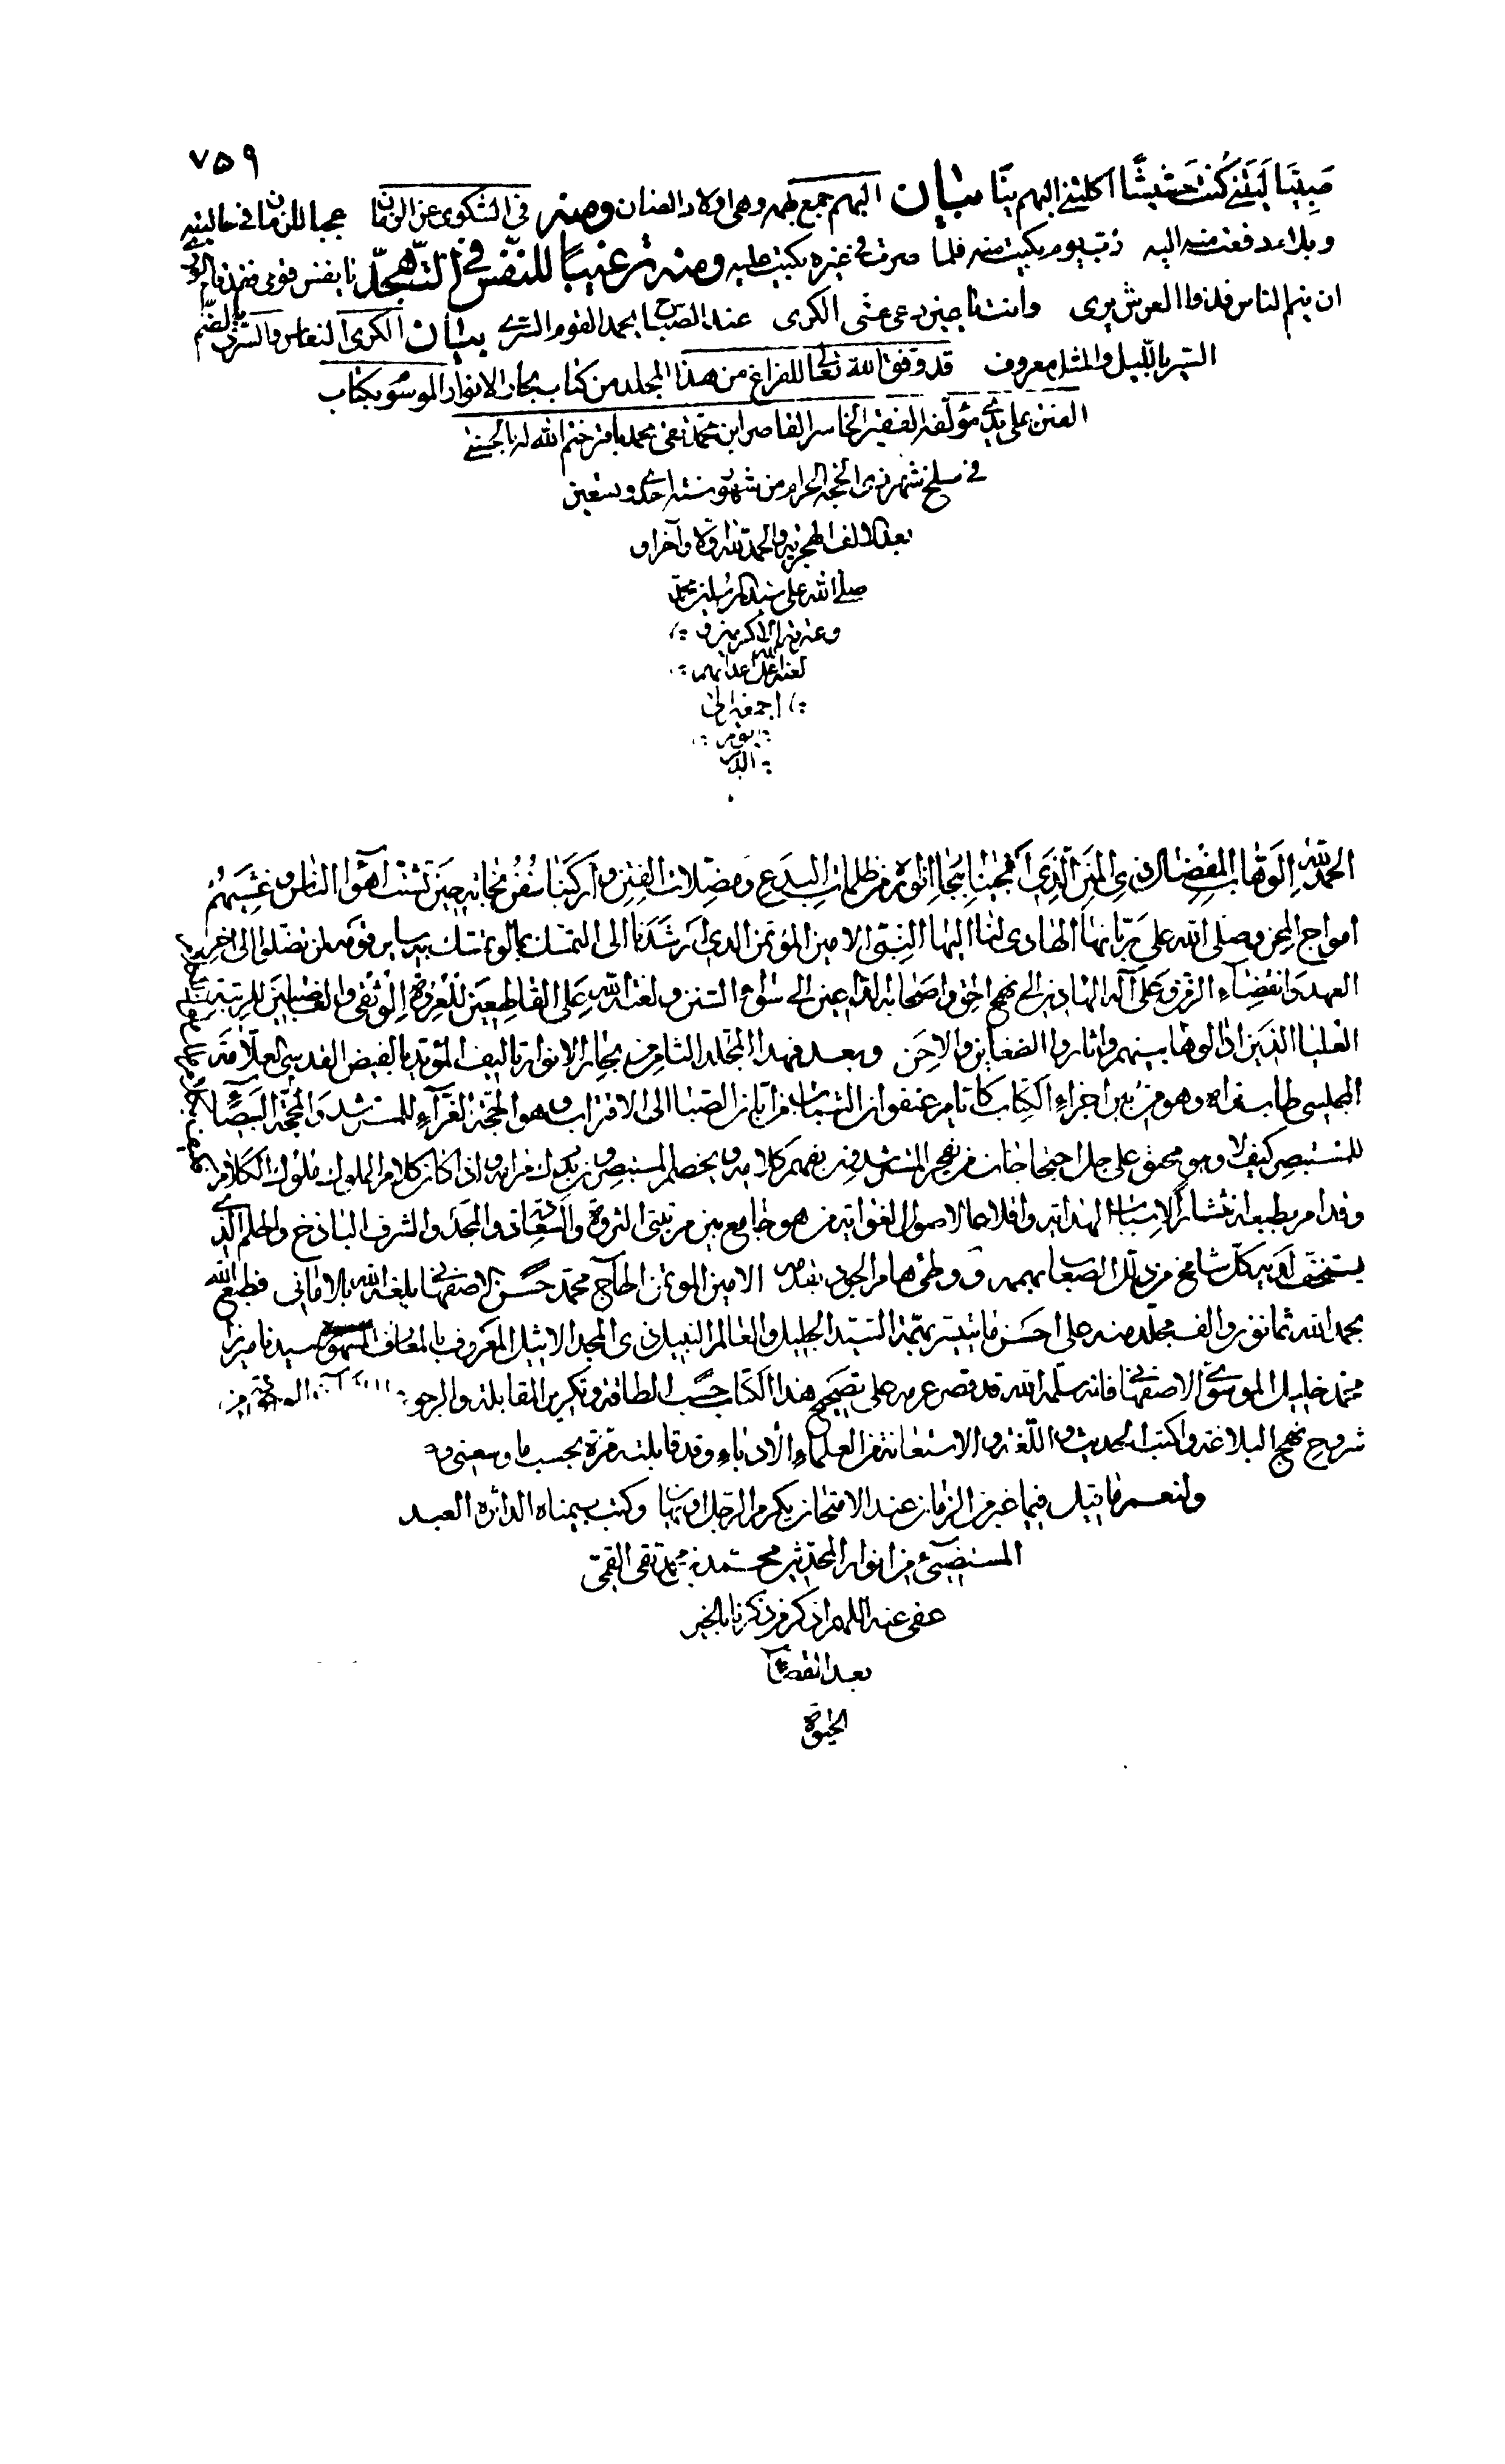 ٧٥٩
صبيتا ليتني كنت حشيشا اكلتني البهم بنا بيان البهم جمع بهمه وهي اولاد الضان ومنه في الشكوى عن الزمان عجبا للزمان في حالتيه
وبلاء دفعت منه اليه رب يوم بكيت منه فلما صرت في غيره بكيت عليه ومنه ترغيبا للنفس في التهجد يا نفس قومي فقد قام الورى
ان ينم الناس فذو العرش يرى وانت يا عين دعي عني الكرى عند الصباح يحمد القوم السرى بيان الكرى النعاس والسرى بالضم
السير بالليل والمثل معروف قد وفق الله تعالى للفراغ من هذا المجلد من كتاب بحار الانوار الموسوم بكتاب
الفتن على يدي مؤلفه الفقير الخاسر القاصر ابن محمد تقي محمد باقر ختم الله له بالحسنى
في سلخ شهر ذي الحجة الحرام من شهور سنة احدى وتسعين
بعد الالف الهجرية والحمد لله اولا وآخرا و
صلى الله على سيد المرسلين محمد
وعترته الاكرمين و
لعنة الله على اعدائهم
اجمعين الى
يوم
الدين
الحمد لله الوهاب المفضال ذي المنن الذي انجينا ببحار انواره من ظلمات البدع ومضلات الفتن واركبنا سفن نجاته حين تشتت اهواء الناس وغشيهم
امواج المحن وصلى الله على الهادي لنا اليها النبي الامين المؤتمن الذي ارشدنا الى التمسك بما لو تمسك به لن تضلوا الى اخر
العهد وانقضاء الزمن وعلى آله الهادين الى نهج الحق واصحابه الداعين الى سواء السنن ولعنة الله على القاطعين للعروة الوثقى والغاصبين للرتبة
العليا الذين بينهم واثاروا الضغاين والاحن وبعد فهذا المجلد الثامن من بحار الانوار تاليف المؤيد بالفيض القدسي العلامة
المجلسي طاب ثراه وهو من بين اجزاء الكتاب كايام عنفوان الشباب من ازمان الصبا الى الاقتراب وهو الحجة الغراء للمسترشد والمحجة البيضاء
للمستبصر كيف لا وهو محتو على جل احتجاجات من نهج المسترشدين بفهم كلامه و اذا كان كلام الملوك ملوك الكلام
وقد امر بطبعه انتشارا لاسباب الهداية واقلاعا لاصول الغواية من هو جامع بين مرتبتي الثروة والسعادة والمجد والشرف الباذخ والحلم الذي
لديه كل شامخ من ذلل الصعاب بهممه ووطئ هام الجود بقدمه الامين المؤتمن الحاج محمد حسن الاصفهاني بلغه الله بالاماني فطبع
بحمد الله ثمانون والف مجلد منه على احسن ما تيسر بهمة السيد الجليل والعالم النبيل ذي المجد الاثيل المعروف بالمعارف سيدنا ميرزا
محمد خليل الموسوي الاصفهاني فانه سلمه الله قد قصر عزمه على تصحيح هذا الكتاب حسب الطاقة وتكرير المقابلة والرجوع
شروح نهج البلاغة وكتب الحديث واللغة والاستعانة من العلماء الادباء وقد قابلته مرة بحسب ما وسعني و
ولنعم ما قيل فيما غبر من الزمان عند الامتحان يكرم الرجل او يهان وكتب بيمناه الداثرة العبد
المستضيئ من انوار المحدثين محمد بن محمد تقي القمي
عفى عنه اللهم اذكر من ذكرنا بالخير
بعد انقضاء
الحيوة